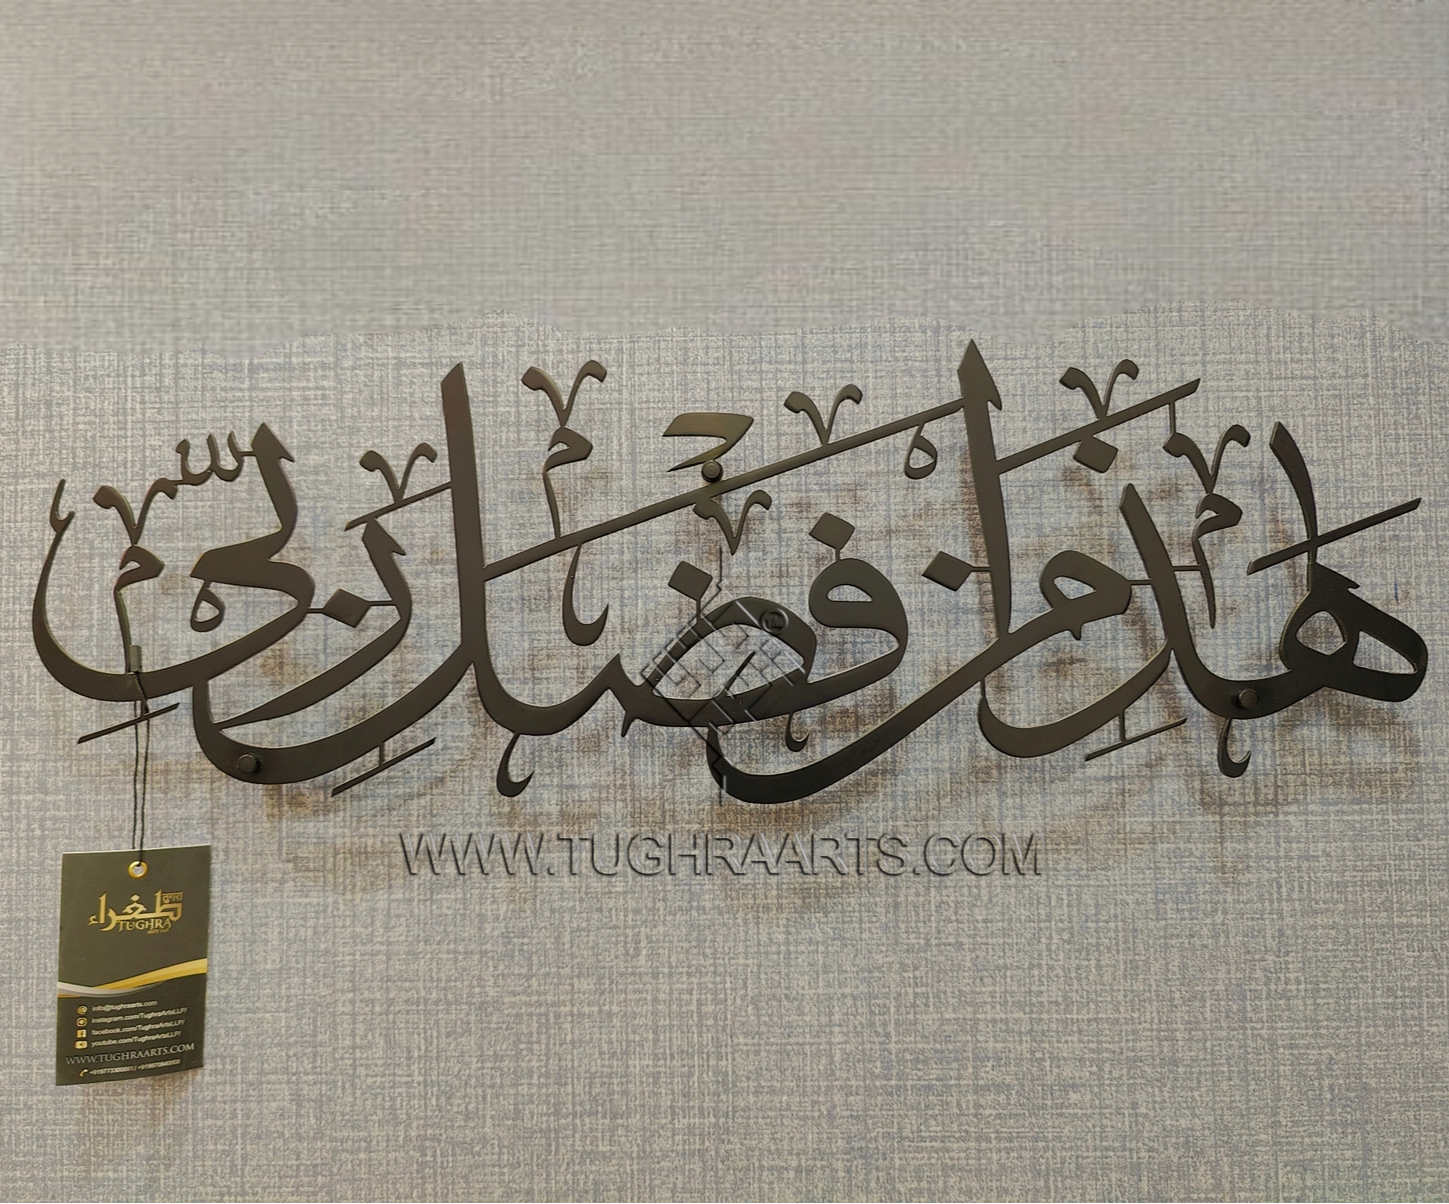 هٰذَا مِنْ فَضْلِ رَبِّي
WWW.TUGHRAARTS.COM
طغراء
TUGHRA
ARTS LLP
info@tughraarts.com
instagram.com/TughraArtsLLP/
facebook.com/TughraArtsLLP/
youtube.com/TughraArtsLLP/
WWW.TUGHRAARTS.COM